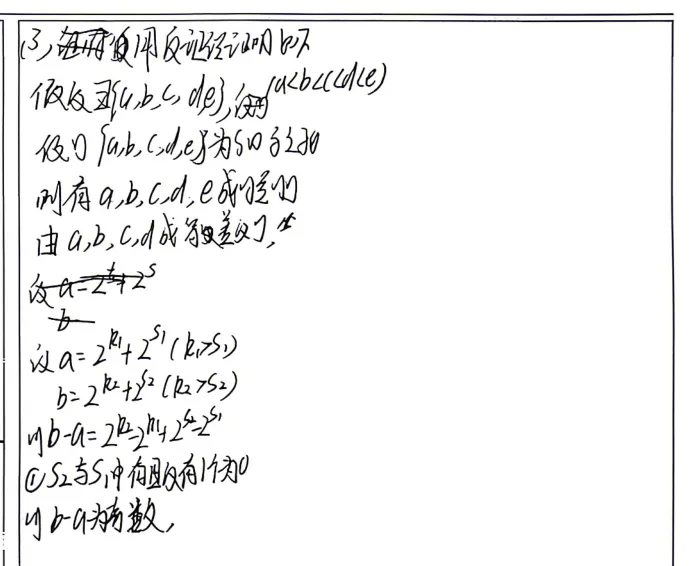 (3) 用反证法证明如下
假设{a,b,c,d,e}, (a<b<c<d<e)
{a,b,c,d,e}为
则有a,b,c,d,e成
由a,b,c,d成等差数列,
设a=2^t+2^s
b
设a=2^{k_1}+2^{s_1}(k_1>s_1)
b=2^{k_2}+2^{s_2}(k_2>s_2)
则b-a=2^{k_2}-2^{k_1}+2^{s_2}-2^{s_1}
①S_2与S_1中有且仅有1个为0
则b-a为奇数,